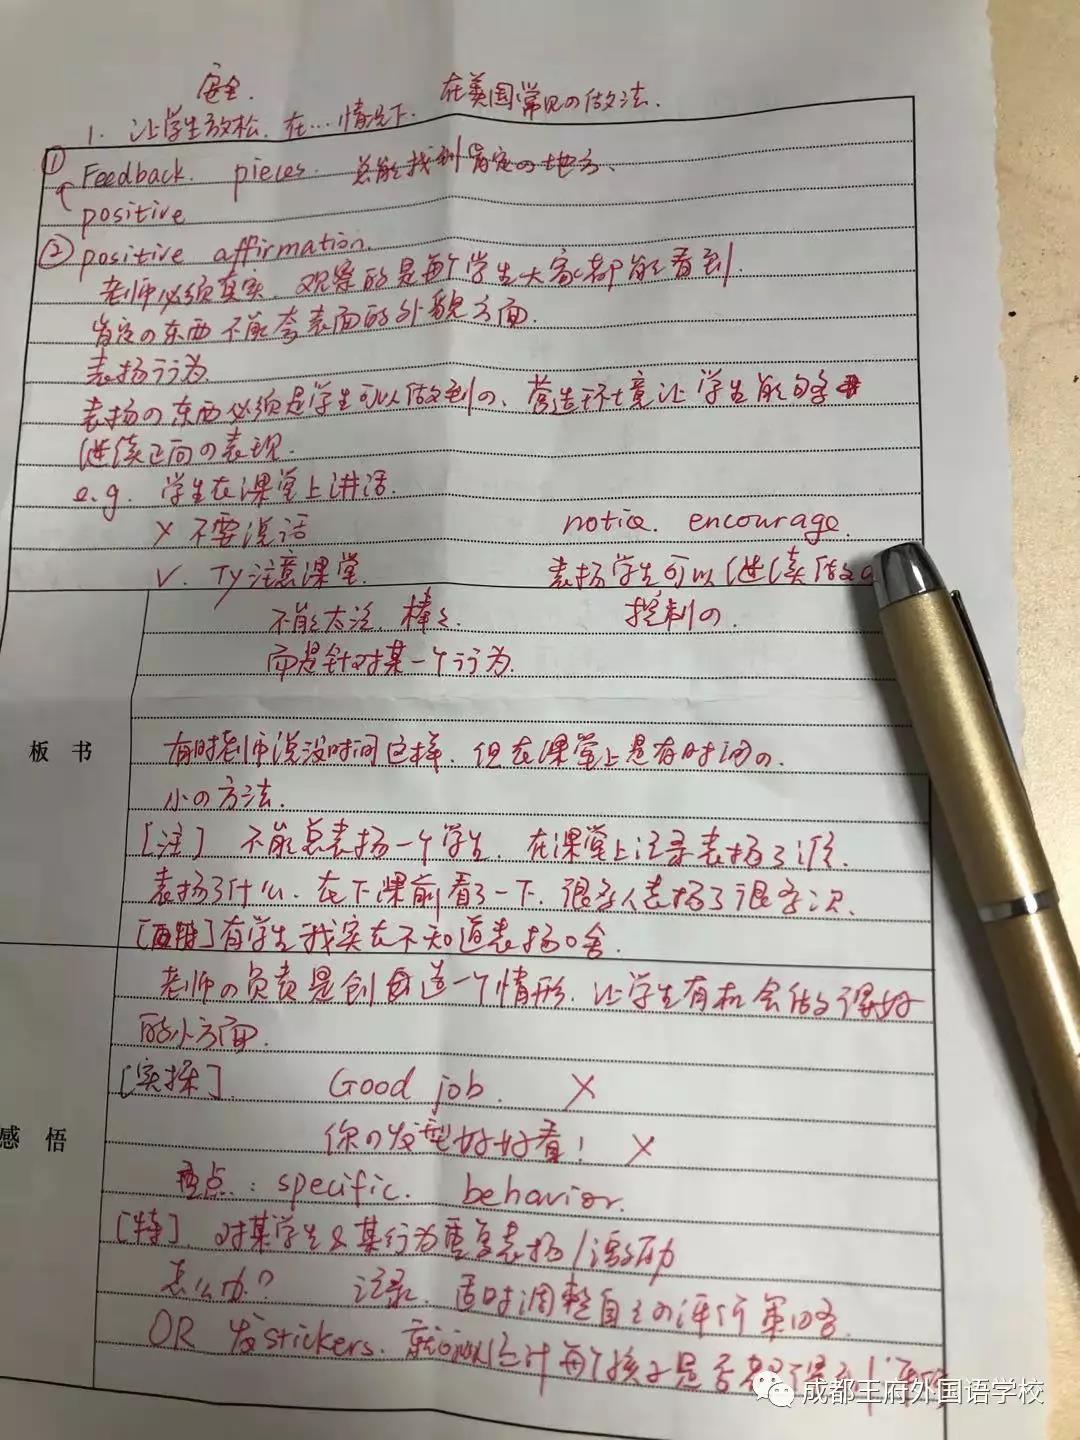 安全. 在美国常见の做法.
1. 让学生放松. 在…情况下.
① Feedback. pieces. 总能找到肯定の地方.
positive
② positive affirmation.
老师必须真实. 观察的是每个学生大家都能看到.
肯定の东西 不能夸表面的外貌方面.
表扬行为.
表扬の东西必须是学生可以做到の、营造环境让学生能够
继续正向の表现.
e.g. 学生在课堂上讲话.
X 不要说话 notice. encourage.
V. Ty注意课堂. 表扬学生可以继续做の
不能太泛. 棒. 控制の.
而是针对某一个行为.
板书
有时老师说没时间这样. 但在课堂上是有时间の.
小の方法.
[注] 不能总表扬一个学生. 在课堂上记录表扬了谁.
表扬了什么. 在下课前看了一下. 很多人表扬了很多次.
有学生我实在不知道表扬啥.
老师の负责是创造一个情形. 让学生有机会做得好
的小方面.
[实操] Good job. X
你の发型好好看! X
感悟
重点: specific. behavior.
[特]. 对某学生&某行为重复表扬/激励
怎么办? 记录. 适时调整自己の评价策略.
OR 发stickers. 就可以统计每个孩子是否都得到
成都王府外国语学校